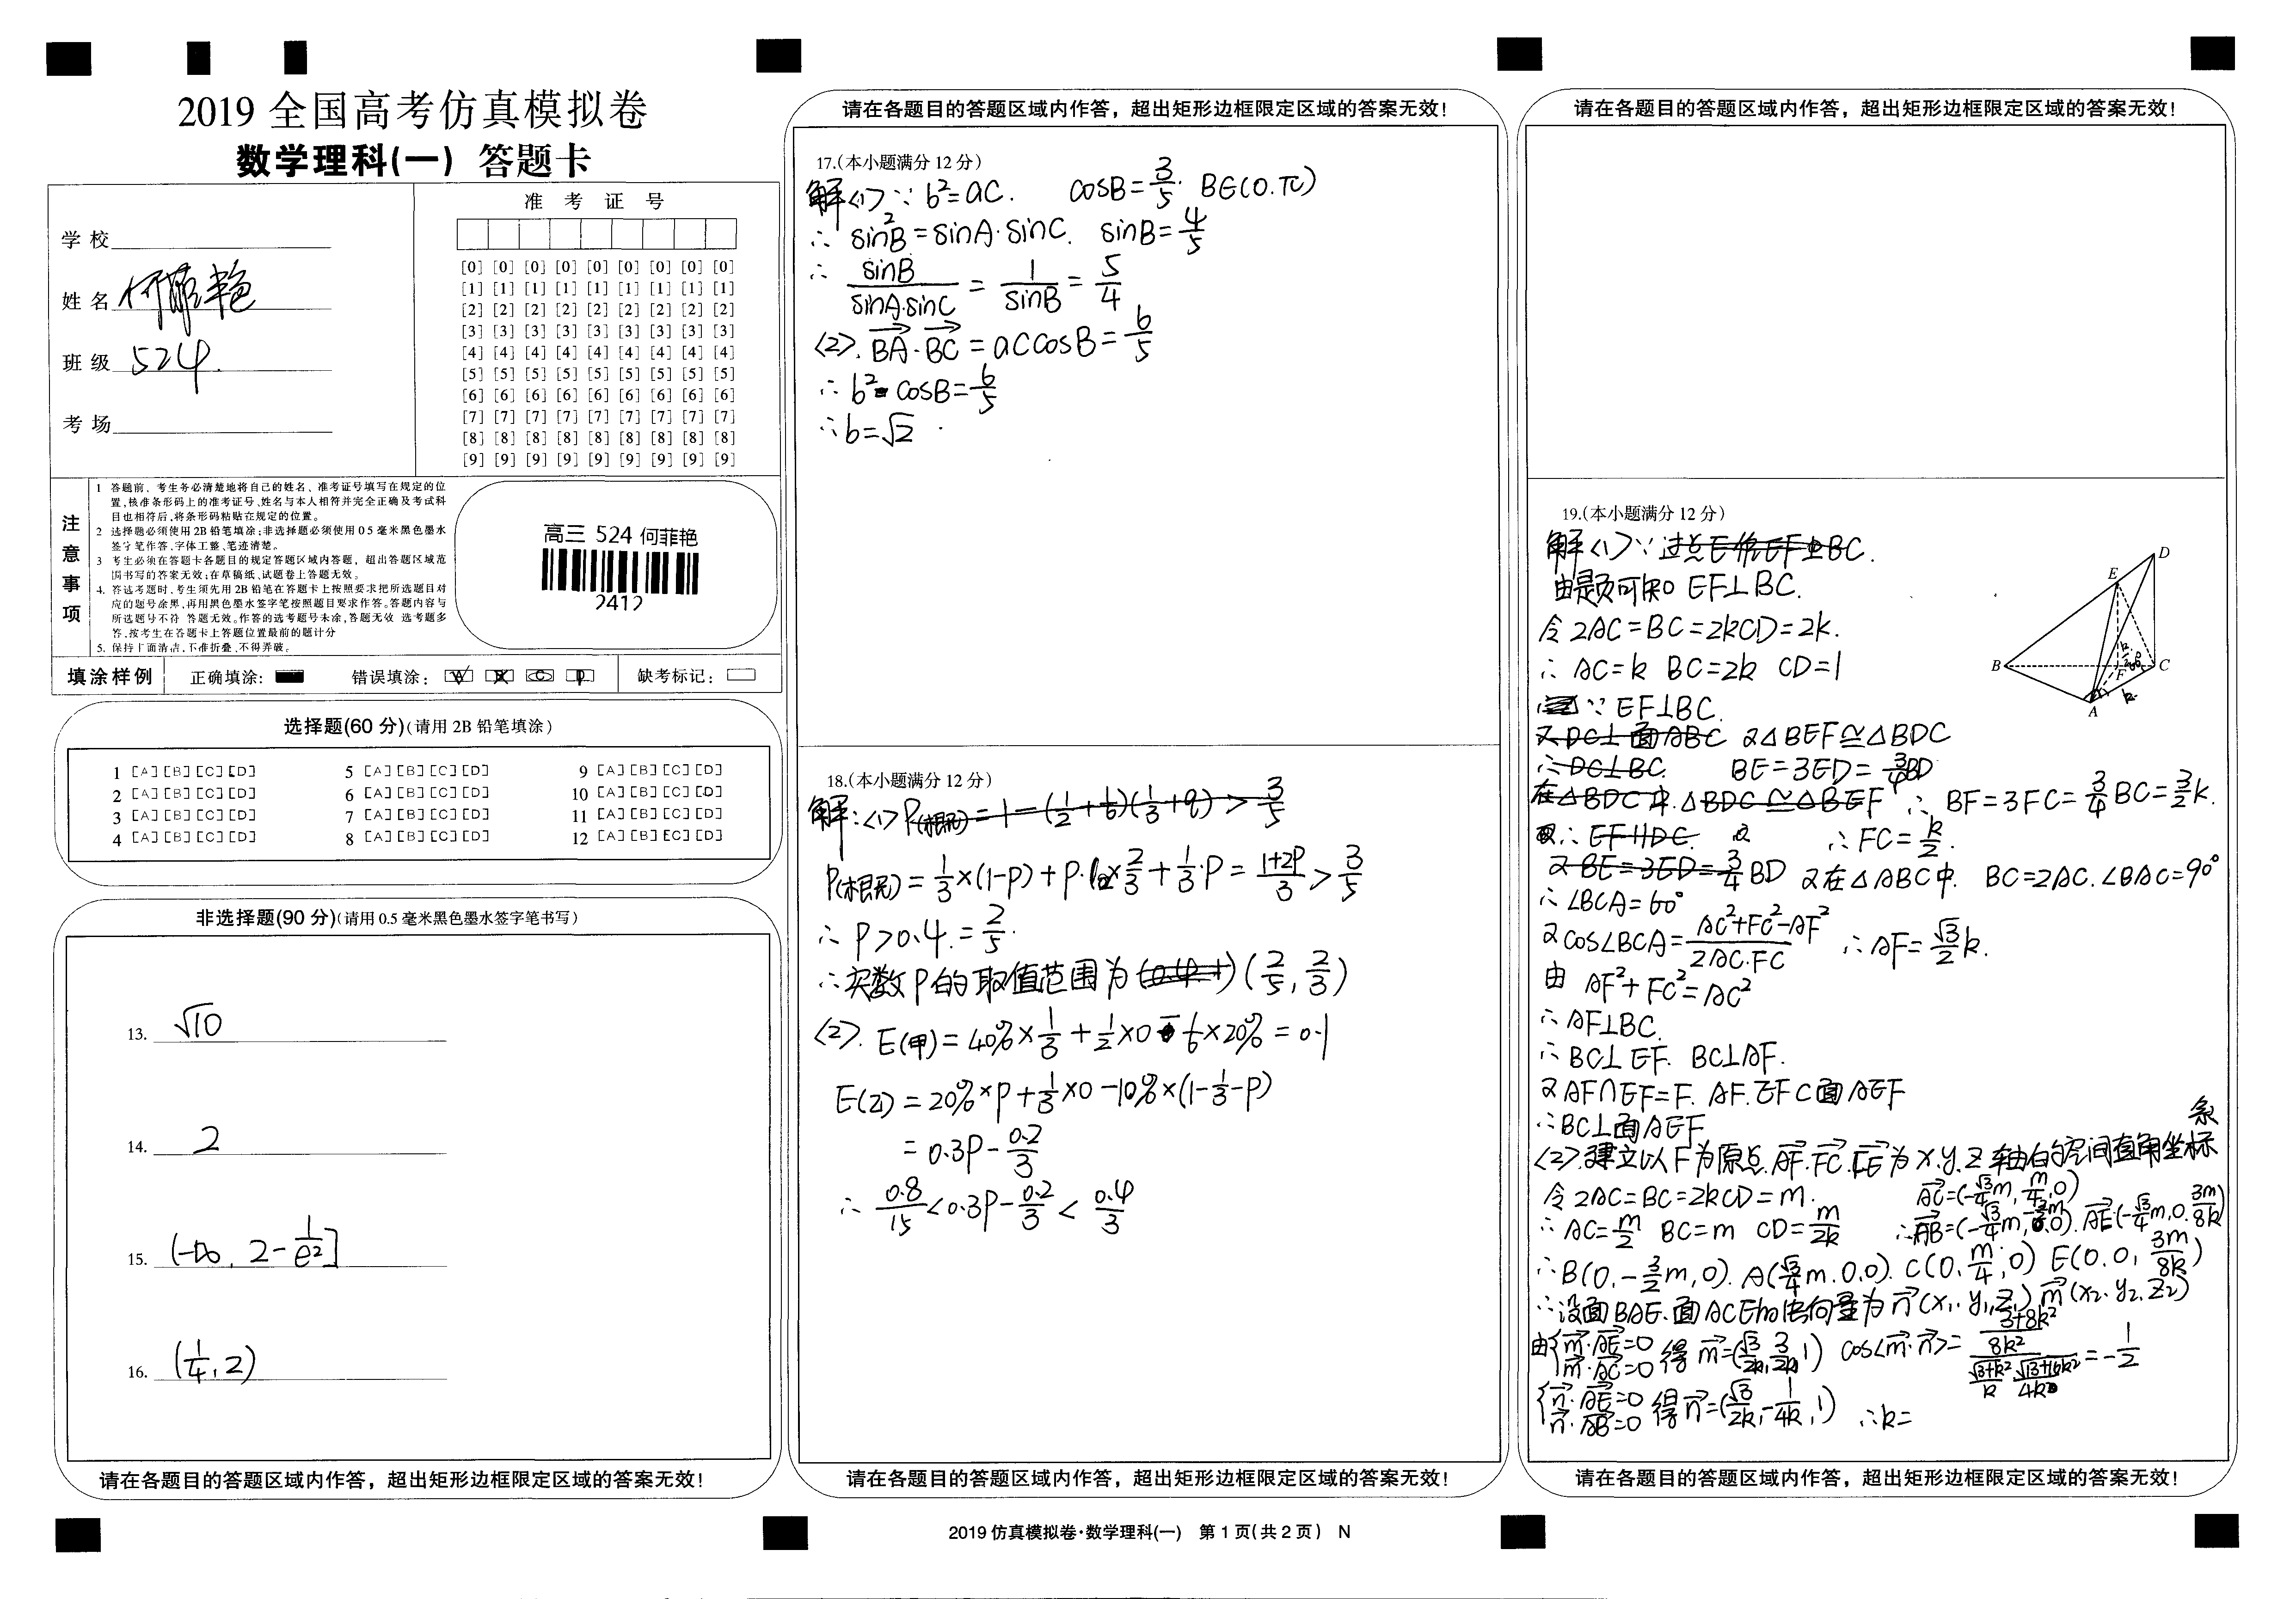 2019 全国高考仿真模拟卷
数学理科(一) 答题卡
准 考 证 号
学 校
姓 名 何菲艳
班 级 524.
考 场
[0] [0] [0] [0] [0] [0] [0] [0] [0]
[1] [1] [1] [1] [1] [1] [1] [1] [1]
[2] [2] [2] [2] [2] [2] [2] [2] [2]
[3] [3] [3] [3] [3] [3] [3] [3] [3]
[4] [4] [4] [4] [4] [4] [4] [4] [4]
[5] [5] [5] [5] [5] [5] [5] [5] [5]
[6] [6] [6] [6] [6] [6] [6] [6] [6]
[7] [7] [7] [7] [7] [7] [7] [7] [7]
[8] [8] [8] [8] [8] [8] [8] [8] [8]
[9] [9] [9] [9] [9] [9] [9] [9] [9]
注意事项
1 答题前，考生务必清楚地将自己的姓名、准考证号填写在规定的位
置,核准条形码上的准考证号、姓名与本人相符并完全正确及考试科
目也相符后,将条形码粘贴在规定的位置。
2 选择题必须使用2B铅笔填涂;非选择题必须使用0 5毫米黑色墨水
签字笔作答,字体工整、笔迹清楚。
3 考生必须在答题卡各题目的规定答题区域内答题，超出答题区域范
围书写的答案无效;在草稿纸、试题卷上答题无效。
4. 答选考题时,考生须先用2B铅笔在答题卡上按照要求把所选题目对
应的题号涂黑,再用黑色墨水签字笔按照题目要求作答。答题内容与
所选题号不符 答题无效。作答的选考题号未涂,答题无效 选考题多
答,按考生在答题卡上答题位置最前的题计分
5. 保持卡面清洁,不准折叠、不得弄破。
高三 524 何菲艳
2412
填涂样例 正确填涂: 错误填涂: 缺考标记:
选择题(60 分)(请用 2B 铅笔填涂)
1 [A] [B] [C] [D] 5 [A] [B] [C] [D] 9 [A] [B] [C] [D]
2 [A] [B] [C] [D] 6 [A] [B] [C] [D] 10 [A] [B] [C] [D]
3 [A] [B] [C] [D] 7 [A] [B] [C] [D] 11 [A] [B] [C] [D]
4 [A] [B] [C] [D] 8 [A] [B] [C] [D] 12 [A] [B] [C] [D]
非选择题(90 分)(请用 0.5 毫米黑色墨水签字笔书写)
13. √10
14. 2
15. (-∞, 2-1/e²]
16. (1/4, 2)
请在各题目的答题区域内作答，超出矩形边框限定区域的答案无效!
请在各题目的答题区域内作答，超出矩形边框限定区域的答案无效!
17.(本小题满分 12 分)
解<1> ∵ b²=ac. cosB=3/5. B∈(0.π)
∴ sin²B=sinA·sinC. sinB=4/5
∴ sinB/(sinA·sinC) = 1/sinB = 5/4
<2>. BA·BC = accosB=6/5
∴ b² cosB=6/5
∴b=√2.
18.(本小题满分 12 分)
解:<1> P(相亏)=1-(1/2+1/6)(1/3+q) > 3/5
=1/3×(1-P)+P·2/3+1/3·P = (1+2P)/3 > 3/5
∴ P>0.4.=2/5.
∴实数P的取值范围为 (2/5, 2/3)
<2>. E(甲)=40%×1/3+1/2×0-1/6×20%=0.1
E(乙)=20%×P+1/3×0-10%×(1-1/3-P)
=0.3P-0.2/3
∴ 0.8/15<0.3P-0.2/3<0.4/3
请在各题目的答题区域内作答，超出矩形边框限定区域的答案无效!
2019 仿真模拟卷·数学理科(一) 第 1 页(共 2 页) N
请在各题目的答题区域内作答，超出矩形边框限定区域的答案无效!
19.(本小题满分 12 分)
解<1>∵过点E作EF⊥BC.
由题可知 EF⊥BC.
令2AC=BC=2kCD=2k.
∴ AC=k BC=2k CD=1
∵ EF⊥BC.
又DC⊥面ABC 又△BEF≅△BDC
∴DC⊥BC. BE=3ED=3/4BD
在△BDC中.△BDC≅△BEF ∴ BF=3FC=3/4BC=3/2k.
∴EF∥DC. 又 ∴FC=k/2.
又BE=3ED=3/4BD 又在△ABC中. BC=2AC.∠BAC=90°
∴∠BCA=60°
又cos∠BCA=(AC²+FC²-AF²)/(2AC·FC) ∴AF=√3/2k.
由 AF²+FC²=AC²
∴AF⊥BC.
∴BC⊥EF. BC⊥AF.
又AF∩EF=F. AF.EF⊂面AEF
∴BC⊥面AEF
<2>.建立以F为原点.AF.FC.FE为x.y.z轴的空间直角坐标系
令2AC=BC=2kCD=m. AC=(-√3/4m,m/4,0)
∴AC=m/2 BC=m CD=m/2k
∴B(0,-3/2m,0). A(√3/4m.0.0). C(0,m/4,0) E(0.0,3m/8k)
∴设面BAE.面ACE的法向量为n(x₁.y₁,z₁) m(x₂.y₂.z₂)
由{m·AE=0 m·AC=0 得 m=(√3/2k,3/2k,1) cos<m·n>= =-1/2
{n·AE=0 n·AB=0 得n=(√3/2k,-1/4k,1) ∴k=
D
E
B
C
F
A
k
请在各题目的答题区域内作答，超出矩形边框限定区域的答案无效!